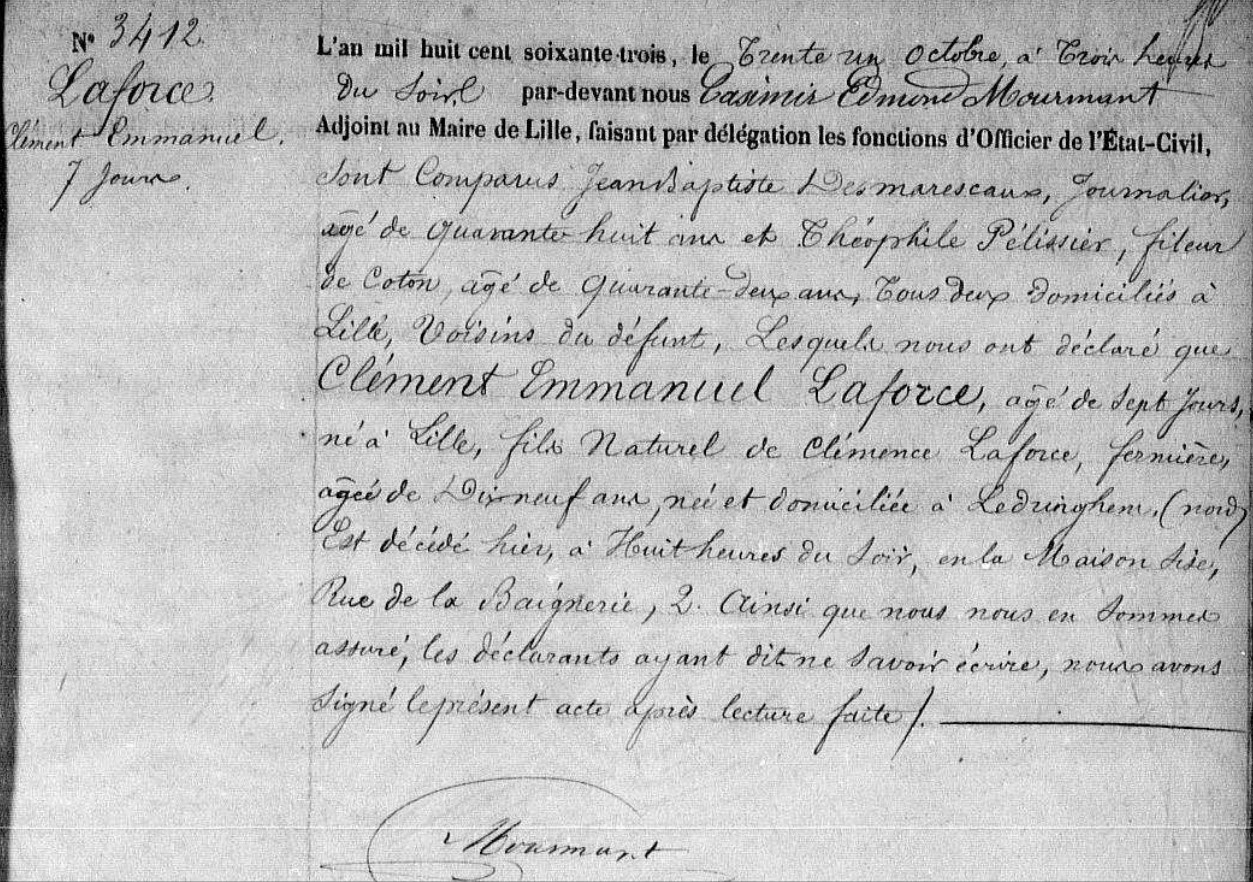 N° 3412
Laforce.
Clément Emmanuel.
7 Jours.
L'an mil huit cent soixante-trois, le Trente un Octobre, à Trois heures
du Soir par-devant nous Casimir Edmond Mourmant
Adjoint au Maire de Lille, faisant par délégation les fonctions d'Officier de l'État-Civil,
Sont Comparus Jean Baptiste Desmarescaux, Journalier,
agé de quarante-huit ans et Théophile Pélissier, fileur
de Coton, agé de quarante-deux ans, Tous deux domiciliés à
Lille, Voisins du défunt, Lesquels nous ont déclaré que
Clément Emmanuel Laforce, agé de Sept Jours,
né à Lille, fils Naturel de Clémence Laforce, fermière,
agée de Dix neuf ans, née et domiciliée à Ledringhem, (nord)
Est décédé hier, à Huit heures du Soir, en la Maison Sise,
Rue de la Baignerie, 2. Ainsi que nous nous en Sommes
assuré, les déclarants ayant dit ne Savoir écrire, nous avons
Signé le présent acte après lecture faite /.
Mourmant